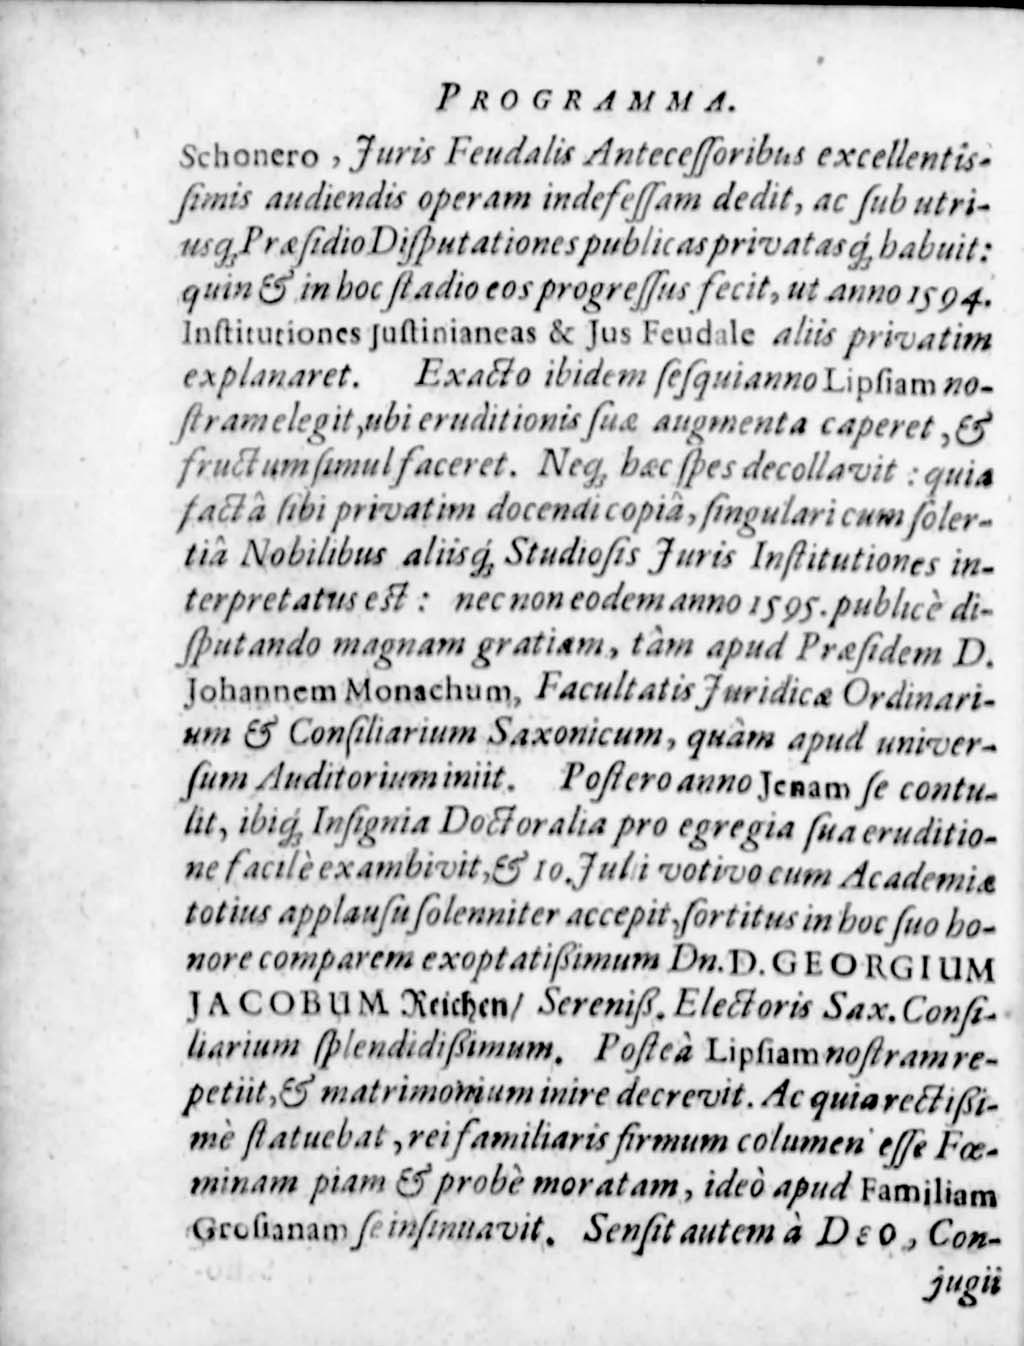 PROGRAMMA.
Schonero, Juris Feudalis Anteceſſoribus excellentiſ-
ſimis audiendis operam indefeſſam dedit, ac ſub utri-
usq́; Præſidio Diſputationes publicas privatasq́; habuit:
quin & in hoc ſtadio eos progreſſus fecit, ut anno 1594.
Inſtitutiones Juſtinianeas & Jus Feudale aliis privatim
explanaret. Exacto ibidem ſeſquianno Lipſiam no-
ſtram elegit, ubi eruditionis ſuæ augmenta caperet, &
fructum ſimul faceret. Neq; hæc ſpes decollavit: quia
factâ ſibi privatim docendi copiâ, ſingulari cum ſoler-
tiâ Nobilibus aliisq́; Studioſis Juris Inſtitutiones in-
terpretatus eſt: nec non eodem anno 1595. publicè di-
ſputando magnam gratiam, tàm apud Præſidem D.
Johannem Monachum, Facultatis Juridicæ Ordinari-
um & Conſiliarium Saxonicum, quàm apud univer-
ſum Auditorium iniit. Poſtero anno Jenam ſe contu-
lit, ibiq́; Inſignia Doctoralia pro egregia ſua eruditio-
ne facilè exambivit, & 10. Julii votivo cum Academiæ
totius applauſu ſolenniter accepit, ſortitus in hoc ſuo ho-
nore comparem exoptatißimum Dn. D. GEORGIUM
JACOBUM Reichen/ Sereniß. Electoris Sax. Conſi-
liarium ſplendidißimum. Poſteà Lipſiam noſtram re-
petiit, & matrimonium inire decrevit. Ac quia rectißi-
mè ſtatuebat, rei familiaris firmum columen eſſe Fœ-
minam piam & probè moratam, ideò apud Familiam
Groſianam ſe inſinuavit. Senſit autem à DEO, Con-
jugii